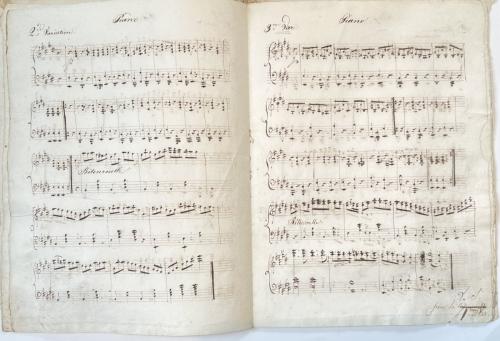 Piano
2.d Variation
Ritournelle
Piano
3.e Var
Ritournelle